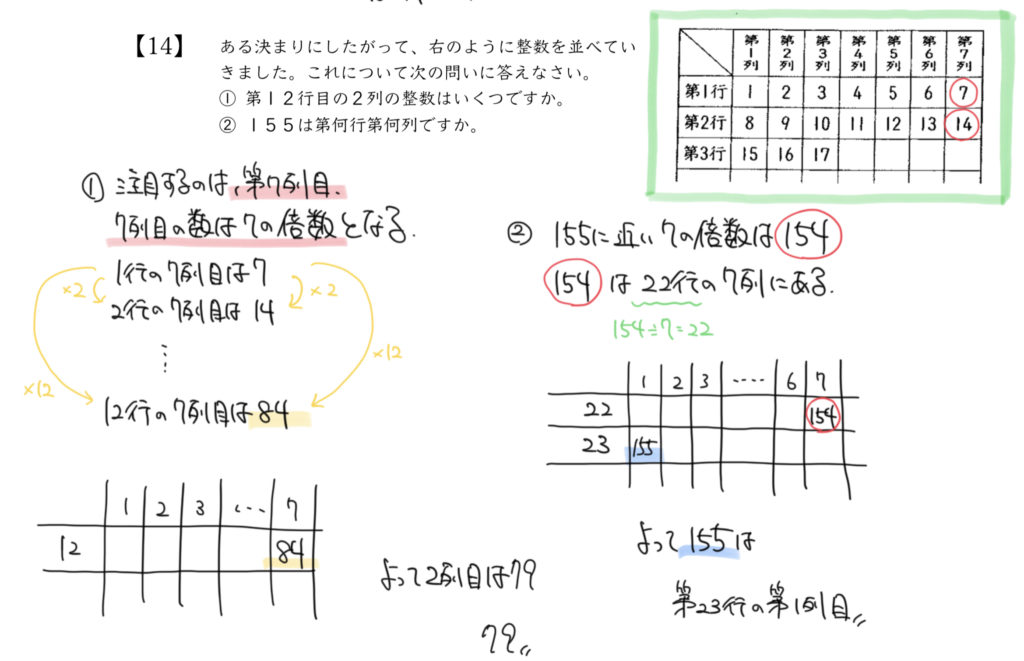 【14】 ある決まりにしたがって、右のように整数を並べてい
きました。これについて次の問いに答えなさい。
① 第12行目の2列の整数はいくつですか。
② 155は第何行第何列ですか。
第1列 第2列 第3列 第4列 第5列 第6列 第7列
第1行 1 2 3 4 5 6 7
第2行 8 9 10 11 12 13 14
第3行 15 16 17
① 注目するのは、第7列目、
7列目の数は7の倍数となる.
1行の7列目は7
×2 ×2
2行の7列目は 14
⋮
×12 ×12
12行の7列目は84
1 2 3 ... 7
12 84
よって2列目は79
79〃
② 155に近い7の倍数は154
154は22行の7列にある.
154÷7=22
1 2 3 .... 6 7
22 154
23 155
よって155は
第23行の第1列目〃